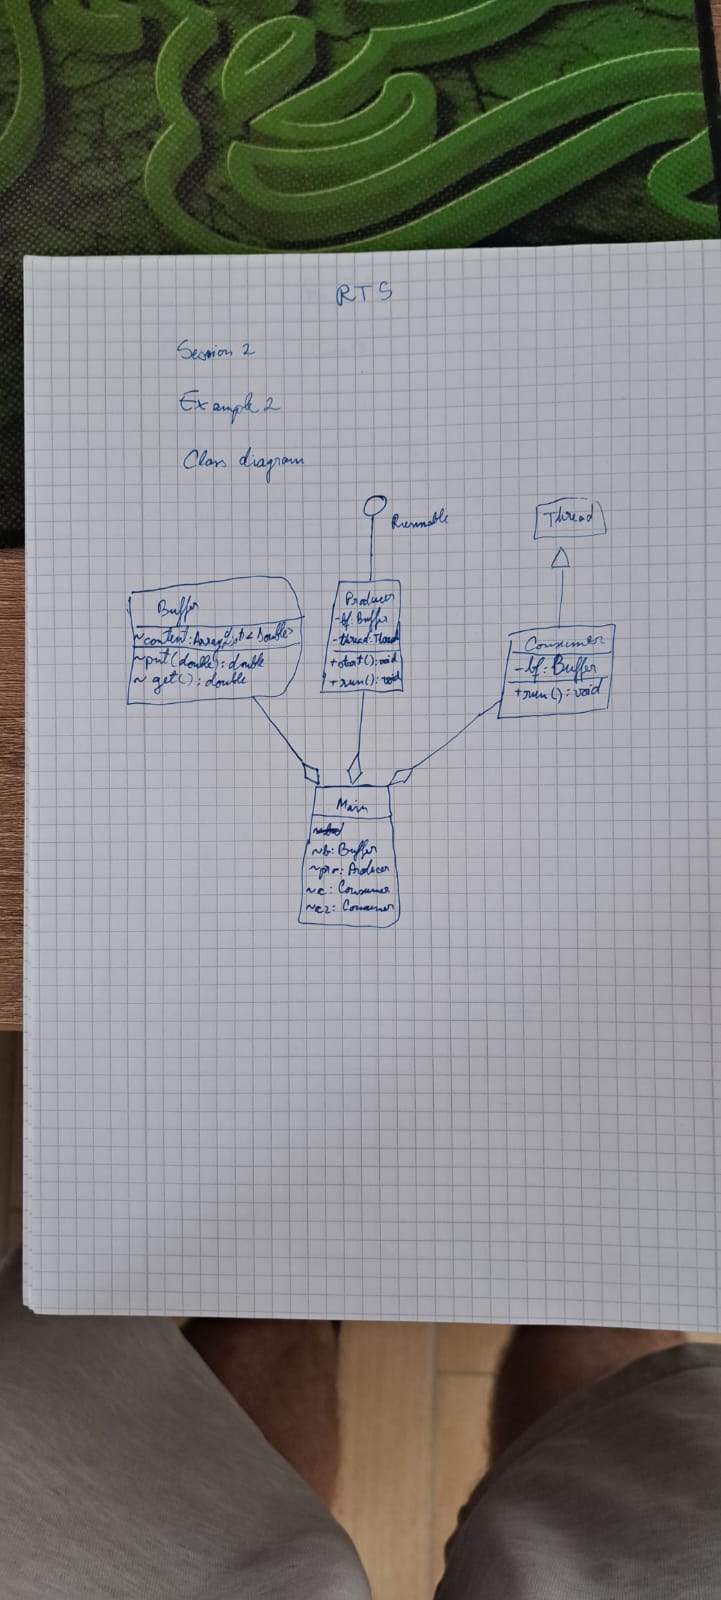 RTS
Session 2
Example 2
Class diagram
Runnable
Thread
Buffer
~content: ArrayList<Double>
~put(double): double
~get(): double
Producer
-bf: Buffer
-thread: Thread
+start(): void
+run(): void
Consumer
-bf: Buffer
+run(): void
Main
~b: Buffer
~pro: Producer
~c: Consumer
~c2: Consumer